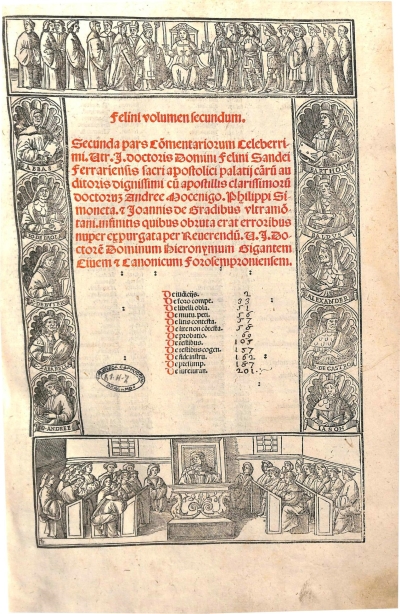 Felini volumen secundum.
Secunda pars Cõmentariorum Celeberri-
mi. Utr. J. doctoris Domini Felini Sandei
Ferrariensis sacri apostolici palatij cãrũ au
ditoris dignissimi cũ apostilis clarissimorũ
doctorum Andree Mocenigo. Philippi Si-
moneta. & Joannis de Gradibus yltramõ-
tani. infinitis quibus obruta erat erroribus
nuper expurgata per Reuerendũ. U. J. Do-
ctorẽ Dominum Hieronymum Gigantem
Ciuem & Canonicum Forosemproniensem.
De iudicijs. 2
De foro compt. 33
De libelli obla. 51
De mutu. peti. 56
De litis contesta. 57
De lite non cõtesta. 58
De probatio. 60
De testibus. 105
De testibus cogen. 157
De fide instru. 162
De presump. 187
De iureiuran. 201
ABBAS
BARTHO
ALEXANDER
DE CASTRO
S. ANDREE
IASON